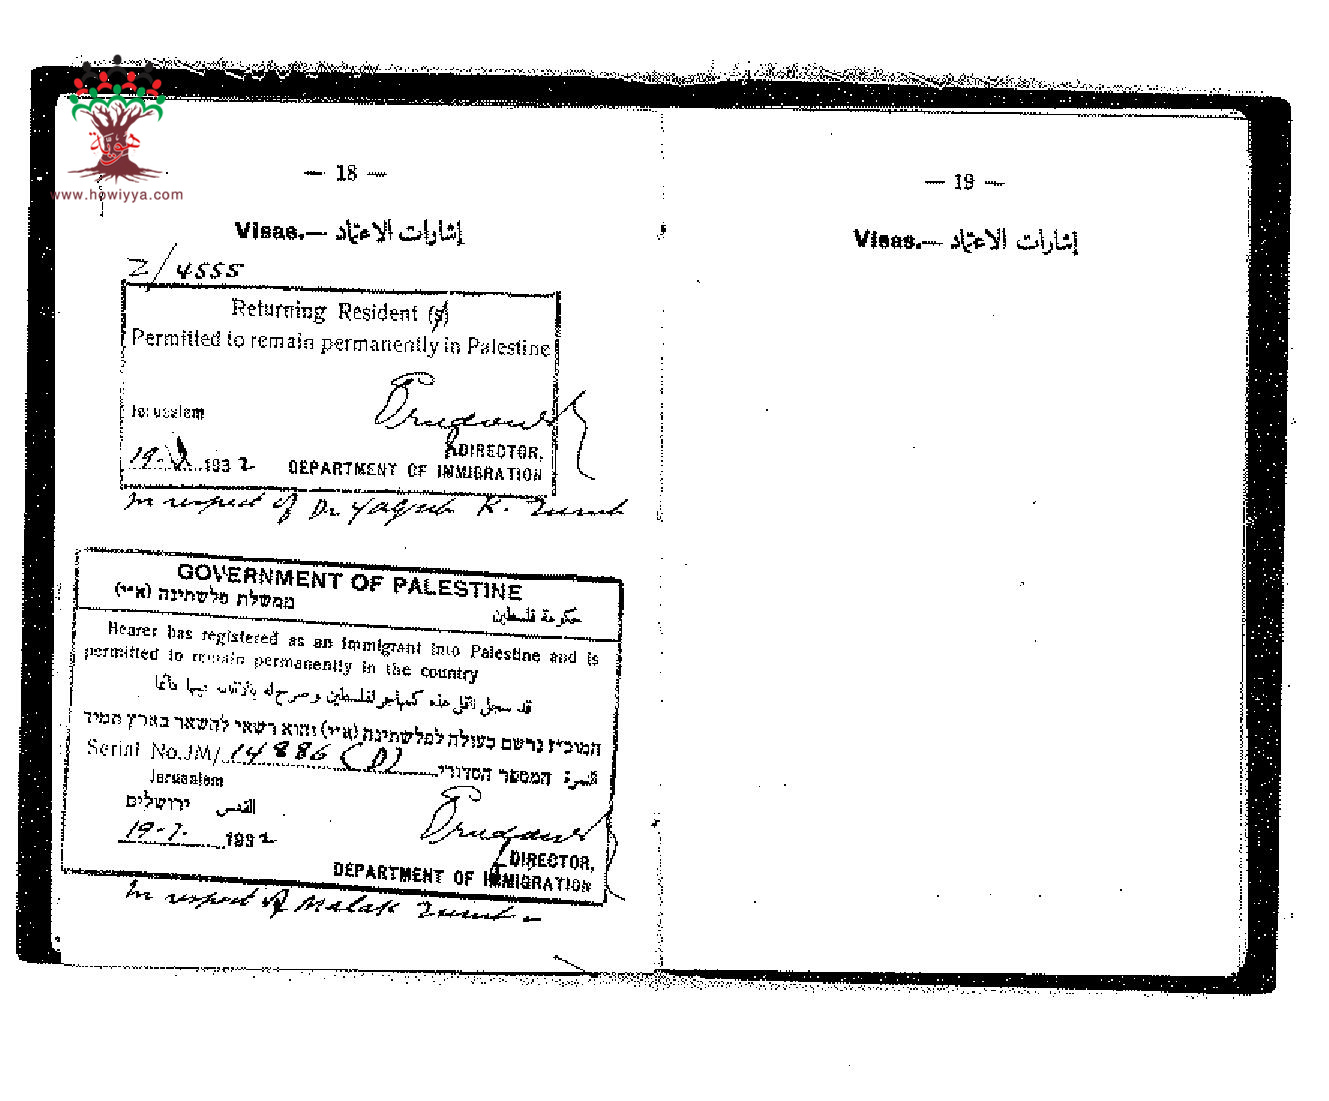 هوية
www.howiyya.com
— 18 —
Visas.— إشارات الاعتماد
2/4555
Returning Resident (s)
Permitted to remain permanently in Palestine
Jerusalem
19- 1932
DIRECTOR,
DEPARTMENT OF IMMIGRATION
In respect of Dr Yaqub K.
GOVERNMENT OF PALESTINE
ממשלת פלשתינה (א״י)
حكومة فلسطين
Bearer has registered as an immigrant into Palestine and is
permitted to remain permanently in the country
قد سجل ناقل هذه كمهاجر لفلسطين وصرح له بالبقاء فيها دائما
המוכ״ז נרשם כעולה לפלשתינה (א״י) והוא רשאי להשאר בארץ תמיד
Serial No.JM/ 14886 (D) המספר הסדורי النمرة
Jerusalem
ירושלים القدس
19-7. 1932
DIRECTOR,
DEPARTMENT OF IMMIGRATION
In respect of Malak
— 19 —
Visas.— إشارات الاعتماد